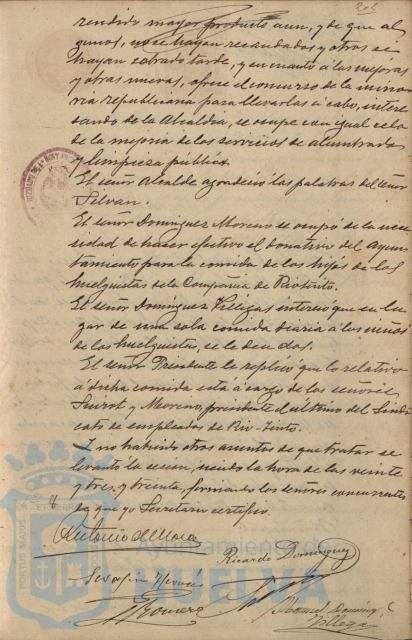 rendido mayor producto aun, y de que al
gunos, no se hayan recaudado y otros se
hayan cobrado tarde, y en cuanto á las mejoras
y otras nuevas, ofrece el concurso de la mino
ria republicana para llevarlas á cabo, intere
sando de la Alcaldia, se ocupe con igual celo
de la mejoria de los servicios de alumbrado
y limpieza publica.
El señor Alcalde agradeció las palabras del señor
El señor Dominguez Moreno se ocupó de la nece
sidad de hacer efectivo el donativo del Ayun
tamiento para la comida de los hijos de los
huelguistas de la Compañia de Riotinto.
El señor Dominguez Villegas interesó que en lu
gar de una sola comida diaria á los niños
de los huelguistas, se le den dos.
El señor Presidente le replicó que lo relativo
á dicha comida está á cargo de los señores
y Moreno, presidente el ultimo del Sindi
cato de empleados de Rio-Tinto.
Y no habiendo otros asuntos de que tratar se
levantó la sesion, siendo la hora de las veinte
y tres y treinta, firmando los señores concurrentes
de que yo Secretario certifico.
Antonio de Mora
Ricardo Dominguez
J Romero
Manuel Doming
Villegas
Ayuntamiento de
HUELVA
PORTUS MARIS